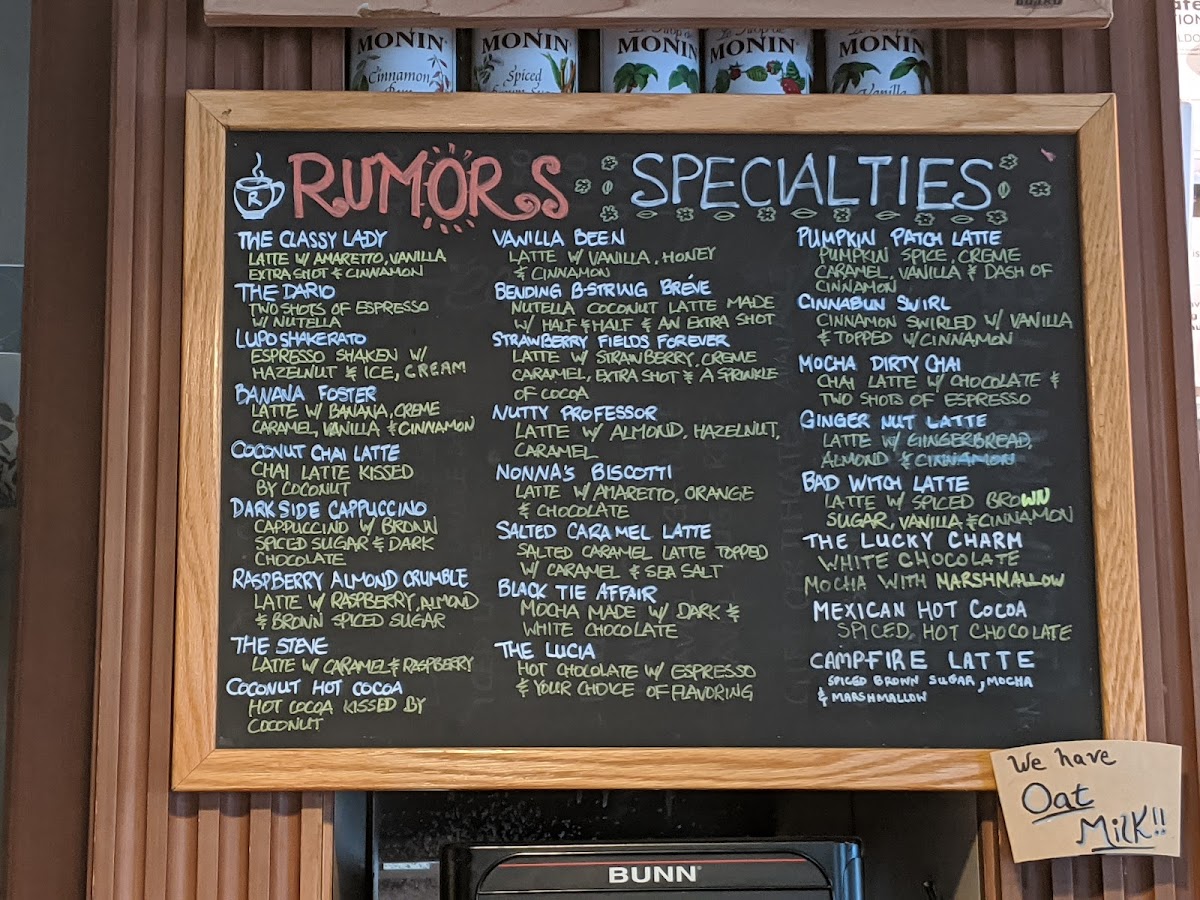 MONIN
Cinnamon
MONIN
Spiced
MONIN
MONIN
MONIN
Vanilla
R
RUMORS SPECIALTIES
THE CLASSY LADY
LATTE W/ AMARETTO, VANILLA
EXTRA SHOT & CINNAMON
THE DARIO
TWO SHOTS OF ESPRESSO
W/ NUTELLA
LUPO SHAKERATO
ESPRESSO SHAKEN W/
HAZELNUT & ICE, CREAM
BANANA FOSTER
LATTE W/ BANANA, CREME
CARAMEL, VANILLA & CINNAMON
COCONUT CHAI LATTE
CHAI LATTE KISSED
BY COCONUT
DARKSIDE CAPPUCCINO
CAPPUCCINO W/ BROWN
SPICED SUGAR & DARK
CHOCOLATE
RASPBERRY ALMOND CRUMBLE
LATTE W/ RASPBERRY, ALMOND
& BROWN SPICED SUGAR
THE STEVE
LATTE W/ CARAMEL & RASPBERRY
COCONUT HOT COCOA
HOT COCOA KISSED BY
COCONUT
VANILLA BEEN
LATTE W/ VANILLA, HONEY
& CINNAMON
BENDING B-STRING BRÉVE
NUTELLA COCONUT LATTE MADE
W/ HALF & HALF & AN EXTRA SHOT
STRAWBERRY FIELDS FOREVER
LATTE W/ STRAWBERRY, CREME
CARAMEL, EXTRA SHOT & A SPRINKLE
OF COCOA
NUTTY PROFESSOR
LATTE W/ ALMOND, HAZELNUT,
CARAMEL
NONNA'S BISCOTTI
LATTE W/ AMARETTO, ORANGE
& CHOCOLATE
SALTED CARAMEL LATTE
SALTED CARAMEL LATTE TOPPED
W/ CARAMEL & SEA SALT
BLACK TIE AFFAIR
MOCHA MADE W/ DARK &
WHITE CHOCOLATE
THE LUCIA
HOT CHOCOLATE W/ ESPRESSO
& YOUR CHOICE OF FLAVORING
PUMPKIN PATCH LATTE
PUMPKIN SPICE, CREME
CARAMEL, VANILLA & DASH OF
CINNAMON
CINNABUN SWIRL
CINNAMON SWIRLED W/ VANILLA
& TOPPED W/ CINNAMON
MOCHA DIRTY CHAI
CHAI LATTE W/ CHOCOLATE &
TWO SHOTS OF ESPRESSO
GINGER NUT LATTE
LATTE W/ GINGERBREAD,
ALMOND & CINNAMON
BAD WITCH LATTE
LATTE W/ SPICED BROWN
SUGAR, VANILLA & CINNAMON
THE LUCKY CHARM
WHITE CHOCOLATE
MOCHA WITH MARSHMALLOW
MEXICAN HOT COCOA
SPICED, HOT CHOCOLATE
CAMPFIRE LATTE
SPICED BROWN SUGAR, MOCHA
& MARSHMALLOW
We have
Oat
MILK!!
BUNN